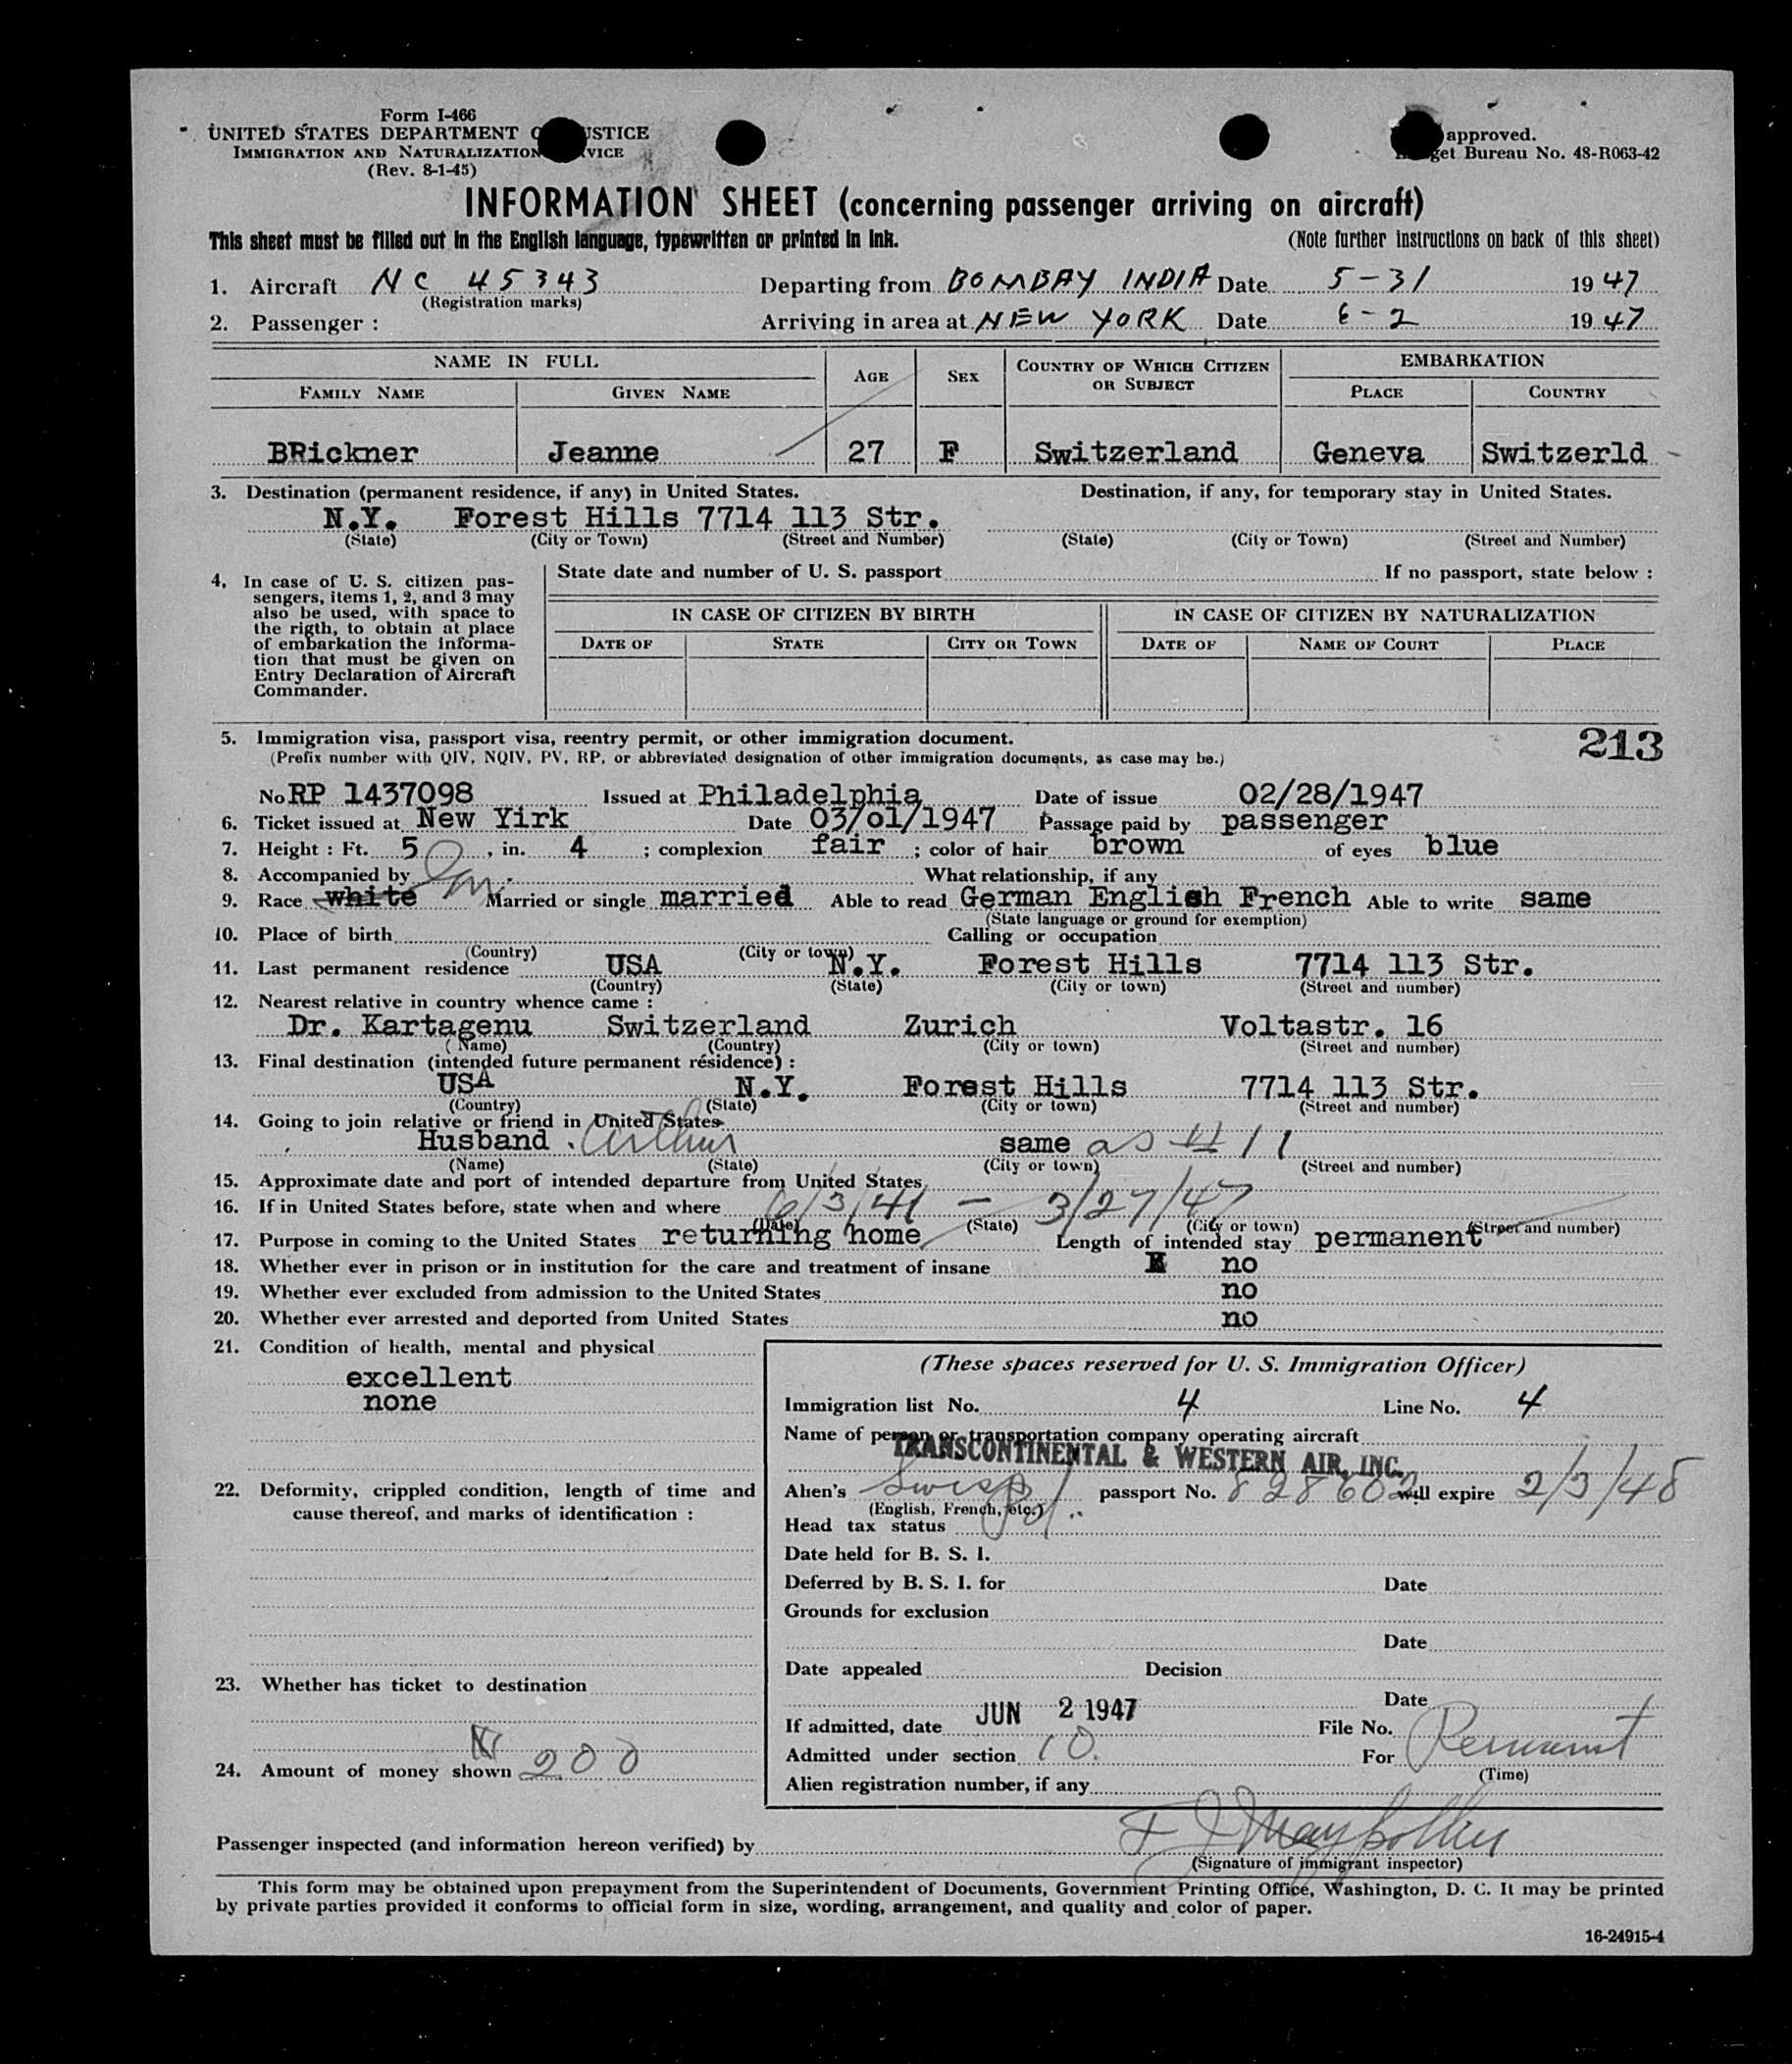 Form I-466
UNITED STATES DEPARTMENT O USTICE
IMMIGRATION AND NATURALIZATION VICE
(Rev. 8-1-45)
approved.
get Bureau No. 48-R063-42
INFORMATION SHEET (concerning passenger arriving on aircraft)
This sheet must be filled out in the English language, typewritten or printed in ink. (Note further instructions on back of this sheet)
1. Aircraft NC 45343 Departing from BOMBAY INDIA Date 5-31 1947
(Registration marks)
2. Passenger : Arriving in area at NEW YORK Date 6-2 1947
NAME IN FULL AGE SEX COUNTRY OF WHICH CITIZEN OR SUBJECT EMBARKATION
FAMILY NAME GIVEN NAME PLACE COUNTRY
BRickner Jeanne 27 F Switzerland Geneva Switzerld
3. Destination (permanent residence, if any) in United States. Destination, if any, for temporary stay in United States.
N.Y. Forest Hills 7714 113 Str.
(State) (City or Town) (Street and Number) (State) (City or Town) (Street and Number)
4. In case of U. S. citizen pas-
sengers, items 1, 2, and 3 may
also be used, with space to
the rigth, to obtain at place
of embarkation the informa-
tion that must be given on
Entry Declaration of Aircraft
Commander.
State date and number of U. S. passport If no passport, state below :
IN CASE OF CITIZEN BY BIRTH IN CASE OF CITIZEN BY NATURALIZATION
DATE OF STATE CITY OR TOWN DATE OF NAME OF COURT PLACE
5. Immigration visa, passport visa, reentry permit, or other immigration document. 213
(Prefix number with QIV, NQIV, PV, RP, or abbreviated designation of other immigration documents, as case may be.)
No RP 1437098 Issued at Philadelphia Date of issue 02/28/1947
6. Ticket issued at New Yirk Date 03/o1/1947 Passage paid by passenger
7. Height : Ft. 5 , in. 4 ; complexion fair ; color of hair brown of eyes blue
8. Accompanied by What relationship, if any
9. Race white Married or single married Able to read German English French Able to write same
(State language or ground for exemption)
10. Place of birth Calling or occupation
(Country) (City or town)
11. Last permanent residence USA N.Y. Forest Hills 7714 113 Str.
(Country) (State) (City or town) (Street and number)
12. Nearest relative in country whence came :
Dr. Kartagenu Switzerland Zurich Voltastr. 16
(Name) (Country) (City or town) (Street and number)
13. Final destination (intended future permanent résidence) :
USA N.Y. Forest Hills 7714 113 Str.
(Country) (State) (City or town) (Street and number)
14. Going to join relative or friend in United States
Husband . Arthur same as # 11
(Name) (State) (City or town) (Street and number)
15. Approximate date and port of intended departure from United States
16. If in United States before, state when and where 6/3/41 - 3/27/47
(Date) (State) (City or town) (Street and number)
17. Purpose in coming to the United States returning home Length of intended stay permanent
18. Whether ever in prison or in institution for the care and treatment of insane no
19. Whether ever excluded from admission to the United States no
20. Whether ever arrested and deported from United States no
21. Condition of health, mental and physical
excellent
none
22. Deformity, crippled condition, length of time and
cause thereof, and marks of identification :
23. Whether has ticket to destination
24. Amount of money shown 200
(These spaces reserved for U. S. Immigration Officer)
Immigration list No. 4 Line No. 4
Name of person or transportation company operating aircraft
TRANSCONTINENTAL & WESTERN AIR, INC.
Alien's Swiss passport No. 828602 will expire 2/3/48
(English, French, etc.)
Head tax status Pd.
Date held for B. S. I.
Deferred by B. S. I. for Date
Grounds for exclusion
Date
Date appealed Decision
Date
If admitted, date JUN 2 1947 File No.
Admitted under section 10. For
(Time)
Alien registration number, if any
Passenger inspected (and information hereon verified) by
(Signature of immigrant inspector)
This form may be obtained upon prepayment from the Superintendent of Documents, Government Printing Office, Washington, D. C. It may be printed
by private parties provided it conforms to official form in size, wording, arrangement, and quality and color of paper.
16-24915-4